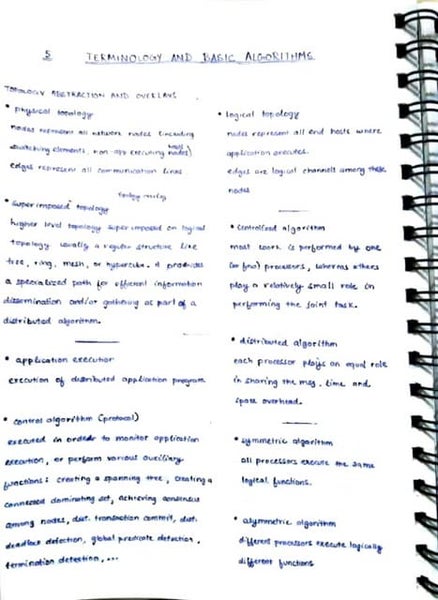 5 TERMINOLOGY AND BASIC ALGORITHMS
TOPOLOGY ABSTRACTION AND OVERLAYS
• physical topology
nodes represent all network nodes (including
switching elements, non-app executing nodes)
edges represent all communication links
• superimposed topology
higher level topology superimposed on logical
topology. usually a regular structure like
tree, ring, mesh, or hypercube. it provides
a specialized path for efficient information
dissemination and/or gathering as part of a
distributed algorithm.
• application execution
execution of distributed application program
• control algorithm (protocol)
executed in order to monitor application
execution, or perform various auxiliary
functions: creating a spanning tree, creating a
connected dominating set, achieving consensus
among nodes, dist. transaction commit, dist.
deadlock detection, global predicate detection,
termination detection, ...
• logical topology
nodes represent all end hosts where
application executes.
edges are logical channels among these
nodes
• centralized algorithm
most work is performed by one
(or few) processors, whereas others
play a relatively small role in
performing the joint task.
• distributed algorithm
each processor plays an equal role
in sharing the msg, time and
space overhead.
• symmetric algorithm
all processors execute the same
logical functions.
• asymmetric algorithm
different processors execute logically
different functions